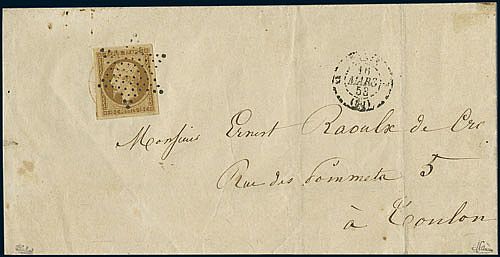 16
MARS
53
Monsieur Ernest Raoulx de Cro
Rue des Pommets 5
à Toulon